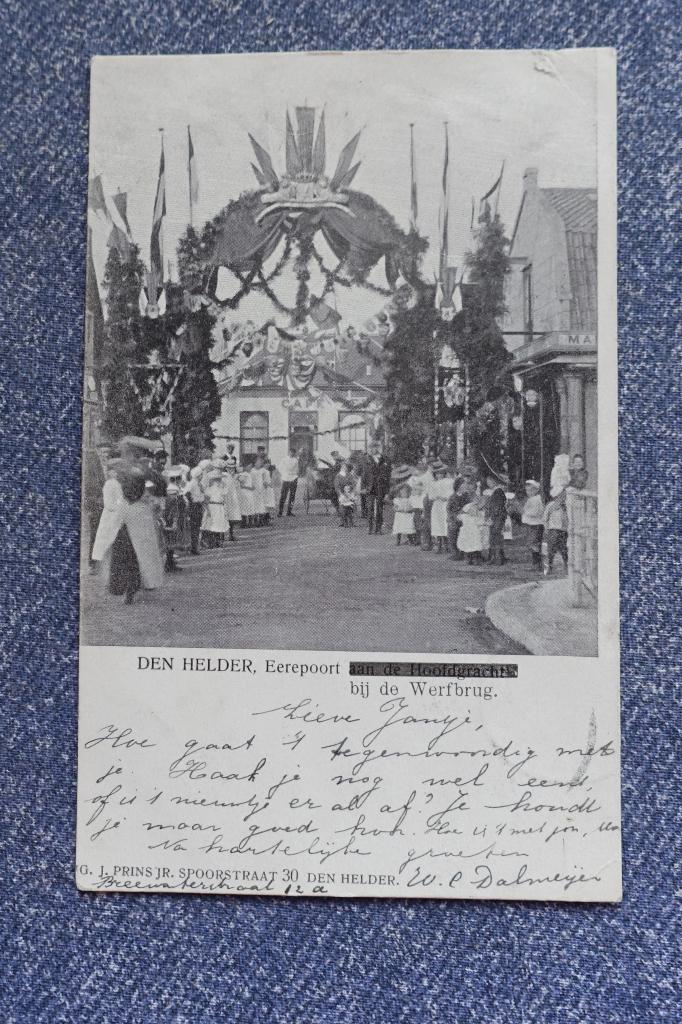 MA
DEN HELDER, Eerepoort aan de Hoofdgracht
bij de Werfbrug.
Lieve Jantje,
Hoe gaat 't tegenwoordig met
je. Haak je nog wel eens,
of is 't nieuwtje er al af? Je houdt
je maar goed hoor. Hoe is 't met jou,
Na hartelijke groeten
G. J. PRINS JR. SPOORSTRAAT 30 DEN HELDER. W. C Dalmeijer
Breewaterstraat 12 a